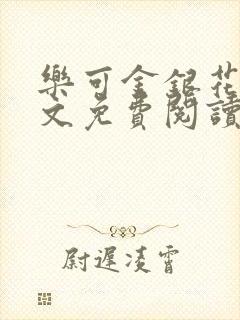 樂可金銀花
文免費閱讀
尉遲凌霄